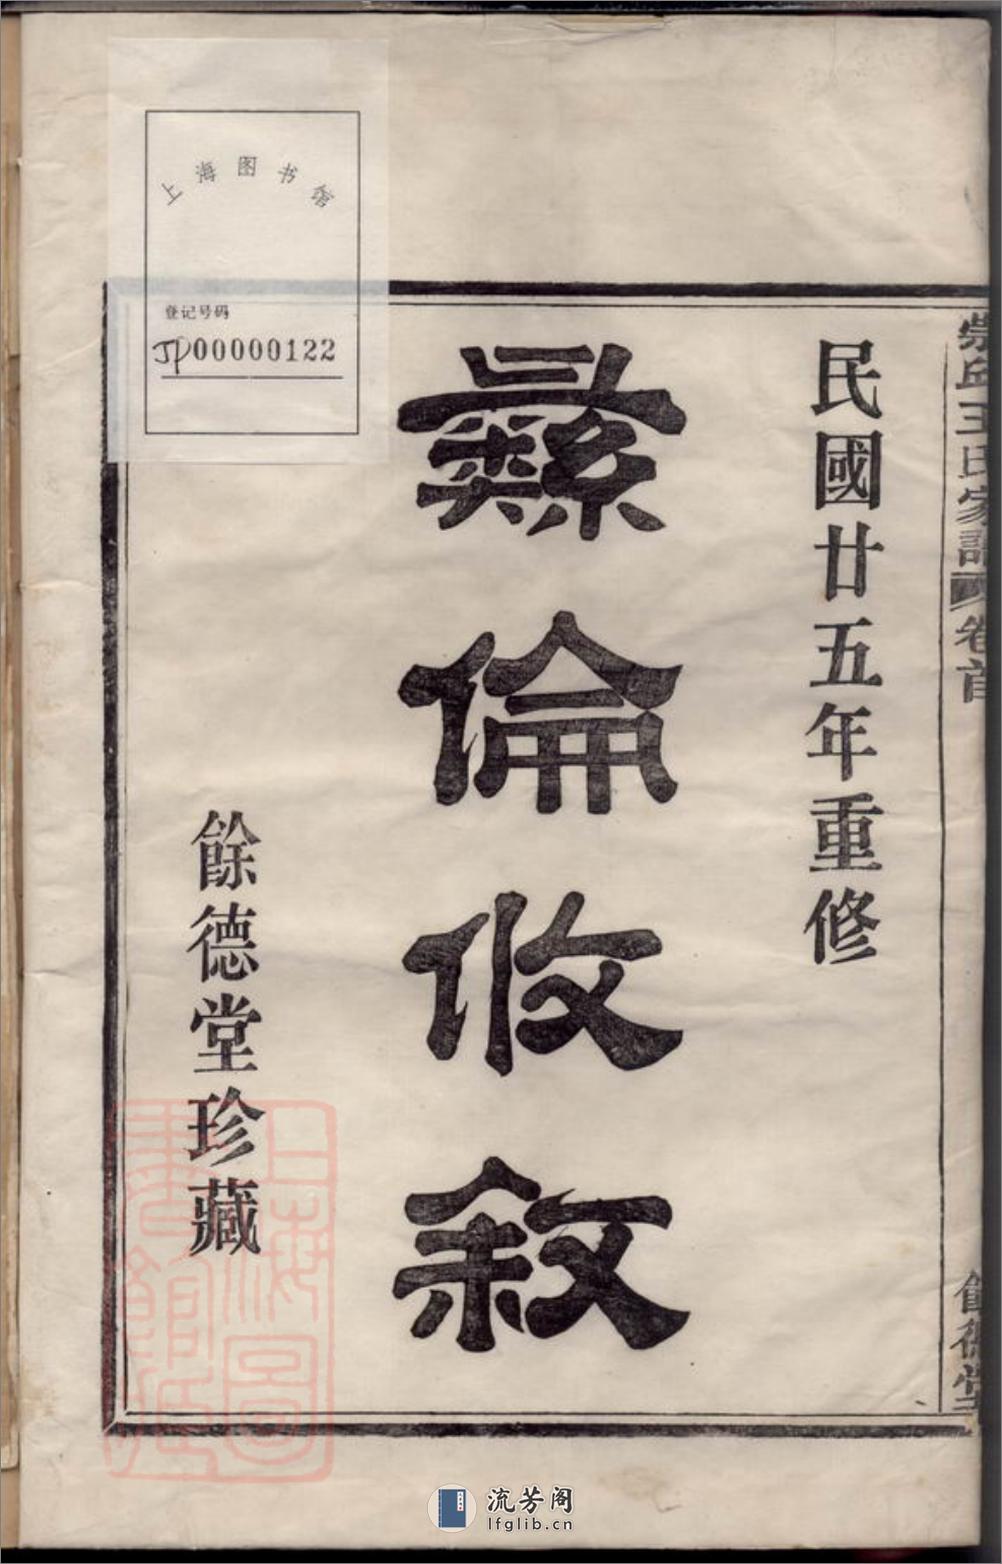 崇邱王氏家譜 卷首
餘德堂
民國廿五年重修
彝倫攸敘
餘德堂珍藏
上海图书馆
登记号码
JP00000122
上海圖書館藏
流芳阁
lfglib.cn